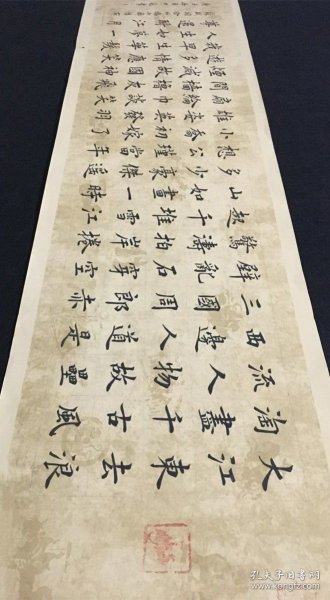 大江東去浪
淘盡千古風
流人物故壘
西邊人道是
三國周郎赤
壁亂石穿空
驚濤拍岸捲
起千堆雪江
山如畫一時
多少豪傑遙
想公瑾當年
小喬初嫁了
雄姿英發羽
扇綸巾談笑
間檣櫓灰飛
煙滅故國神
遊多情應笑
我早生華髮
人生如夢一
江月
孔夫子旧书网
www.kongfz.com